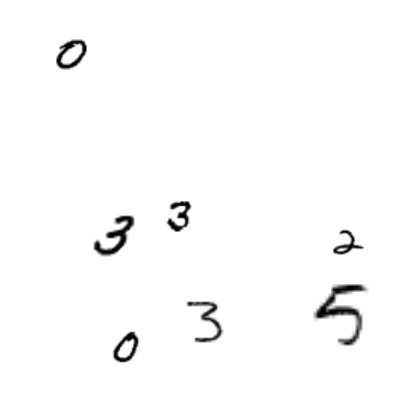 0
3 3 2
0 3 5